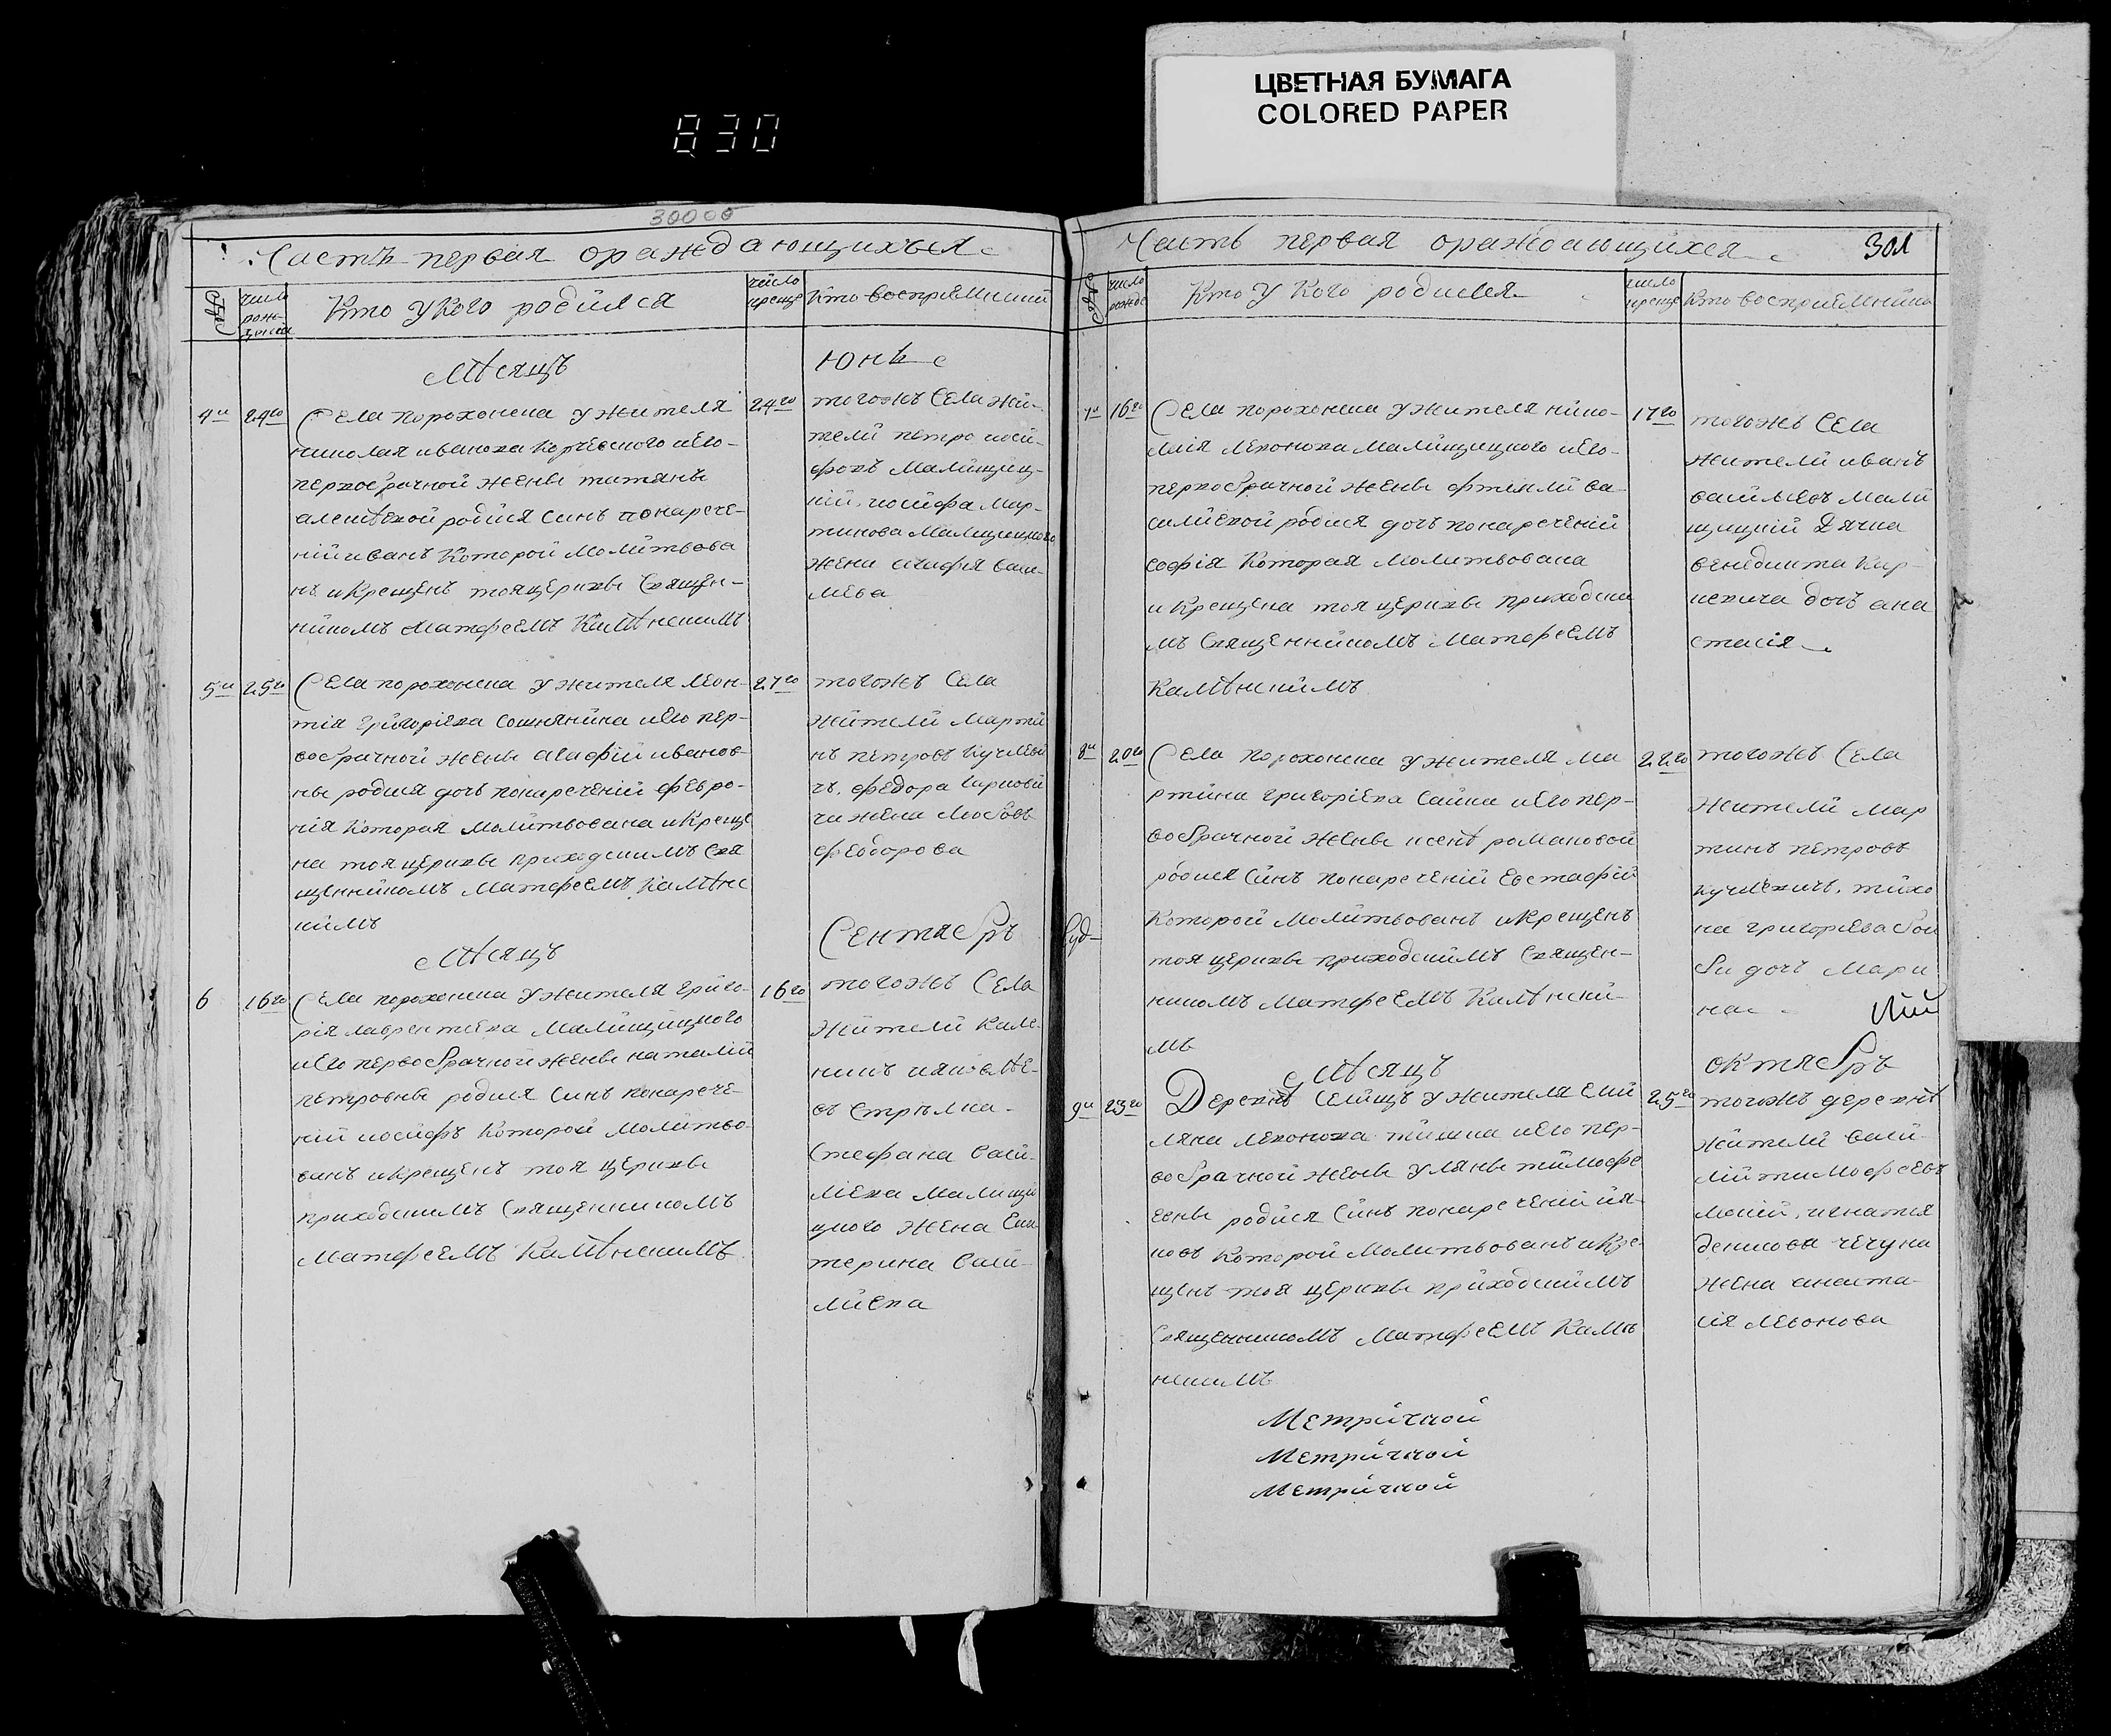 830
ЦВЕТНАЯ БУМАГА
COLORED PAPER
30000
Часть первая ораждающихъся
№
число рож-
дения
Кто у Кого родился
число
креще
Кто восприемники
Мѣсяцъ
Юнь
4й
24го
Села порохонска у жителя
николая иванова Корчевского и его
первобрачной жены татяны
алексѣевой родися синъ понарече-
ній иванъ Которой Молитвова
нъ и Крещенъ тоя церквы Священ-
никомъ Матфеемъ Камѣнскимъ
24го
тогожъ Села жи-
тели петро иоси-
фовъ Малищиц-
кій, иосифа Мар-
тинова Малищицкого
жена агафія васи-
лева
5й
25го
Села порохонска у жителя Леон-
тія григоріева Сошнянина и его пер-
вобрачной жены агафіи иванов-
ны родися дочъ понареченій февро-
нія Которая Молитвована и Креще
на тоя церквы приходскимъ Свя
щенникомъ Матфеемъ Камѣнс
кимъ
27го
тогожъ Села
жители Марти
нъ петровъ Кучмеви
чъ, федора
жена
федорова
Мѣсяцъ
Сентябръ
6
16го
Села порохонска у жителя григо-
рія лаврентіева Малищицкого
и его первобрачной жены наталіи
петровны родися синъ понарече-
ній иосифъ Которой Молитво-
ванъ и крещенъ тоя церквы
приходскимъ Священникомъ
Матфеемъ Камѣнскимъ
16го
тогожъ Села
жители
въ Стрѣлка
Стефана Васи-
ліева Малищи
цкого жена Ека
терина Васи-
лиева
Часть первая ораждающихся
301
№
число
рожде
Кто у Кого родился
число
креще
Кто восприемники
7й
16го
Села порохонска у жителя нико-
лая Левонова Малищицкого и его
первобрачной жены ва
силиевой родися дочъ понареченій
софія Которая Молитвована
и Крещена тоя церквы приходски
мъ Священникомъ Матфеемъ
Камѣнскимъ
17го
тогожъ Села
жители иванъ
василевъ Мали
щицкій Дячка
венедикта Кар-
цевича дочъ ана
стасія
8й
20го
Села порохонска у жителя Ма
ртина григоріева Сайка и его пер-
вобрачной жены ксенѣ романовой
родися Синъ понареченій Евстафій
Которой Молитвованъ и Крещенъ
тоя церквы приходскимъ Священ-
никомъ Матфеемъ Камѣнски-
мъ
22го
тогожъ Села
жители Мар
тинъ петровъ
Кучмевичъ, тихо
на григоріева
дочъ Мари
на
Мѣсяцъ
октябръ
9й
23го
Деревнѣ Селищъ у жителя Еми
ляна Левонова и его пер-
вобрачной жены уляны тимофе
евны родися Синъ понареченій ия-
ковъ Которой Молитвованъ и Кре
щенъ тоя церквы приходскимъ
Священникомъ Матфеемъ Камѣ
нскимъ
25го
тогожъ деревнѣ
жители Васи-
лій тимофеевъ
игнатія
денисова
жена анаста-
сія Левонова
Метричной
Метричной
Метричной